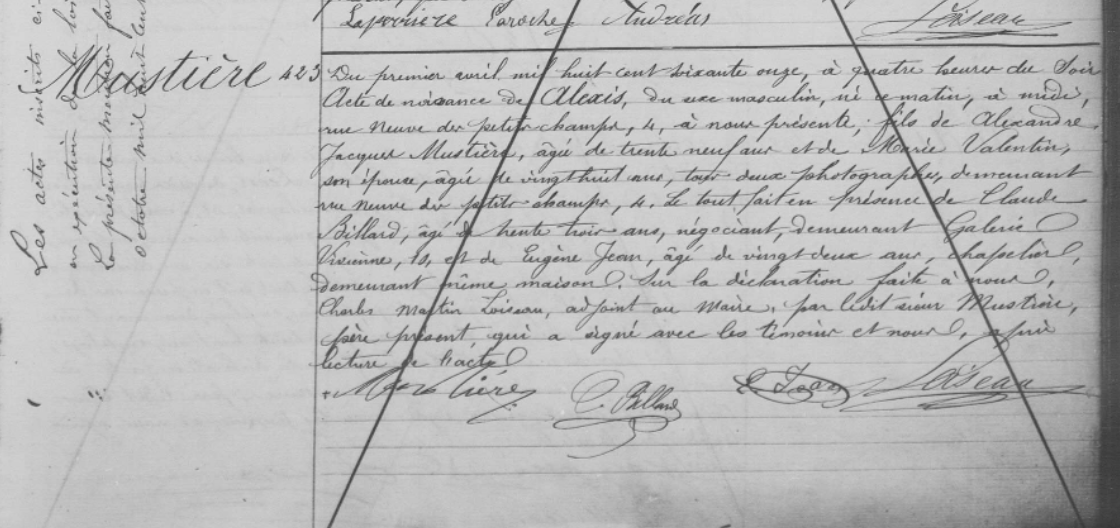 Laferrière Laroche Andréas Loiseau
Les actes inscrits ci-
en exécution de la loi
La présente mention fai
octobre mil huit cent
Mustière 423
Du premier avril mil huit cent soixante onze, à quatre heures du soir
Acte de naissance de Alexis, du sexe masculin, né ce matin, à midi,
rue Neuve des petits champs, 4, à nous présenté, fils de Alexandre
Jacques Mustière, âgé de trente neuf ans et de Marie Valentin,
son épouse, âgée de vingt huit ans, tous deux photographes, demeurant
rue neuve des petits champs, 4. Le tout fait en présence de Claude
Billard, âgé de trente trois ans, négociant, demeurant Galerie
Vivienne, 10, et de Eugène Jean, âgé de vingt deux ans, chapelier,
demeurant même maison. Sur la déclaration faite à nous,
Charles Martin Loiseau, adjoint au Maire, par ledit sieur Mustière,
père présent, qui a signé avec les témoins et nous, après
lecture de l'acte
Mustière C. Billard E. Jean Loiseau